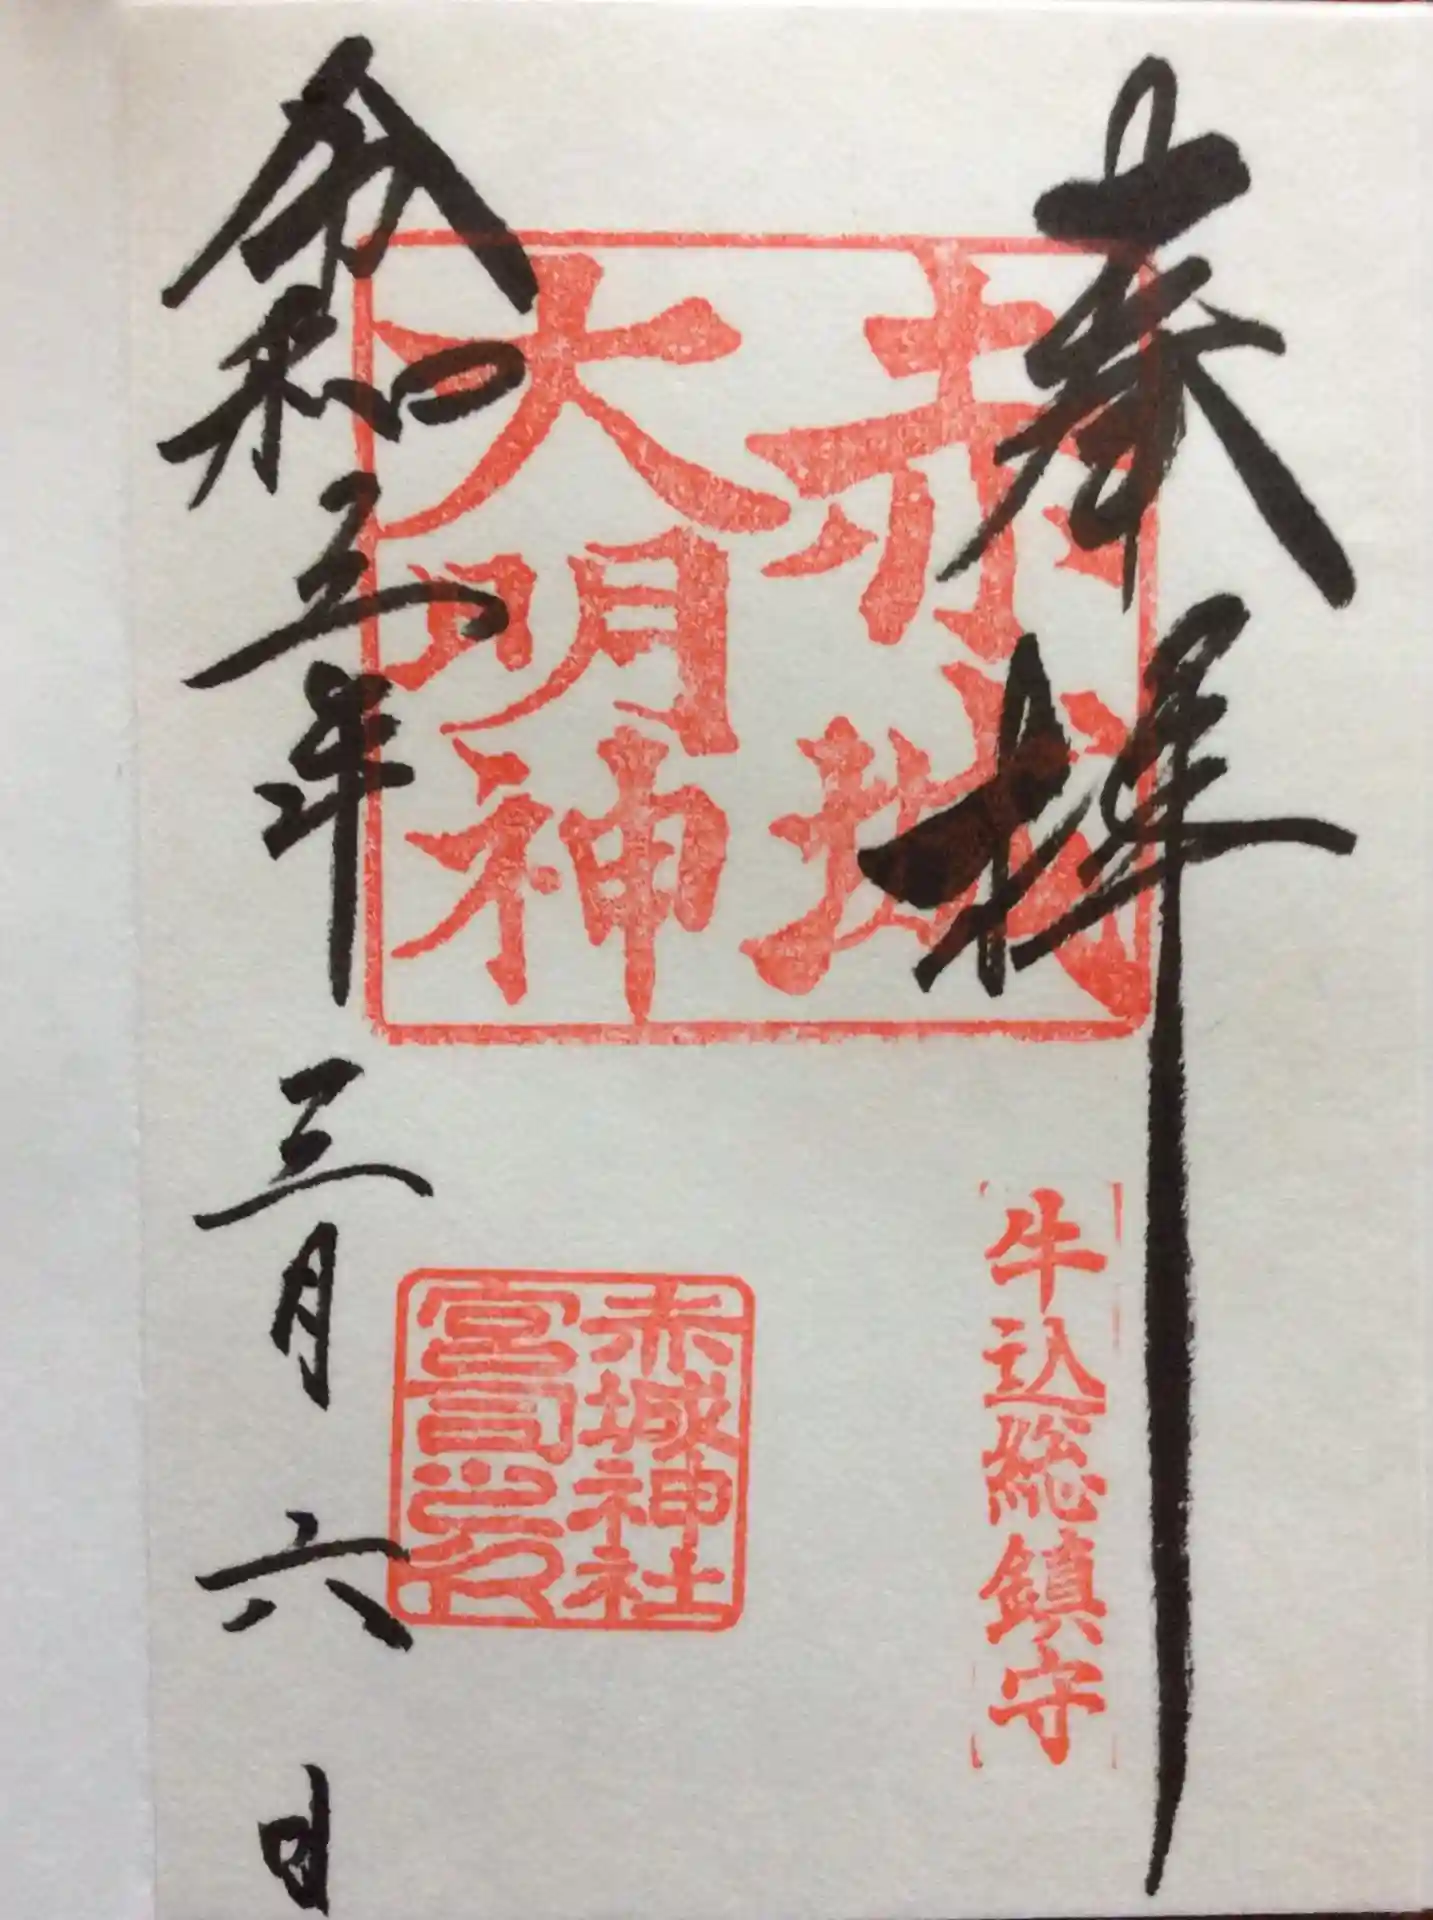 奉拝
牛込総鎮守
赤城
大明神
赤城神社
宮司之印
令和三年三月六日